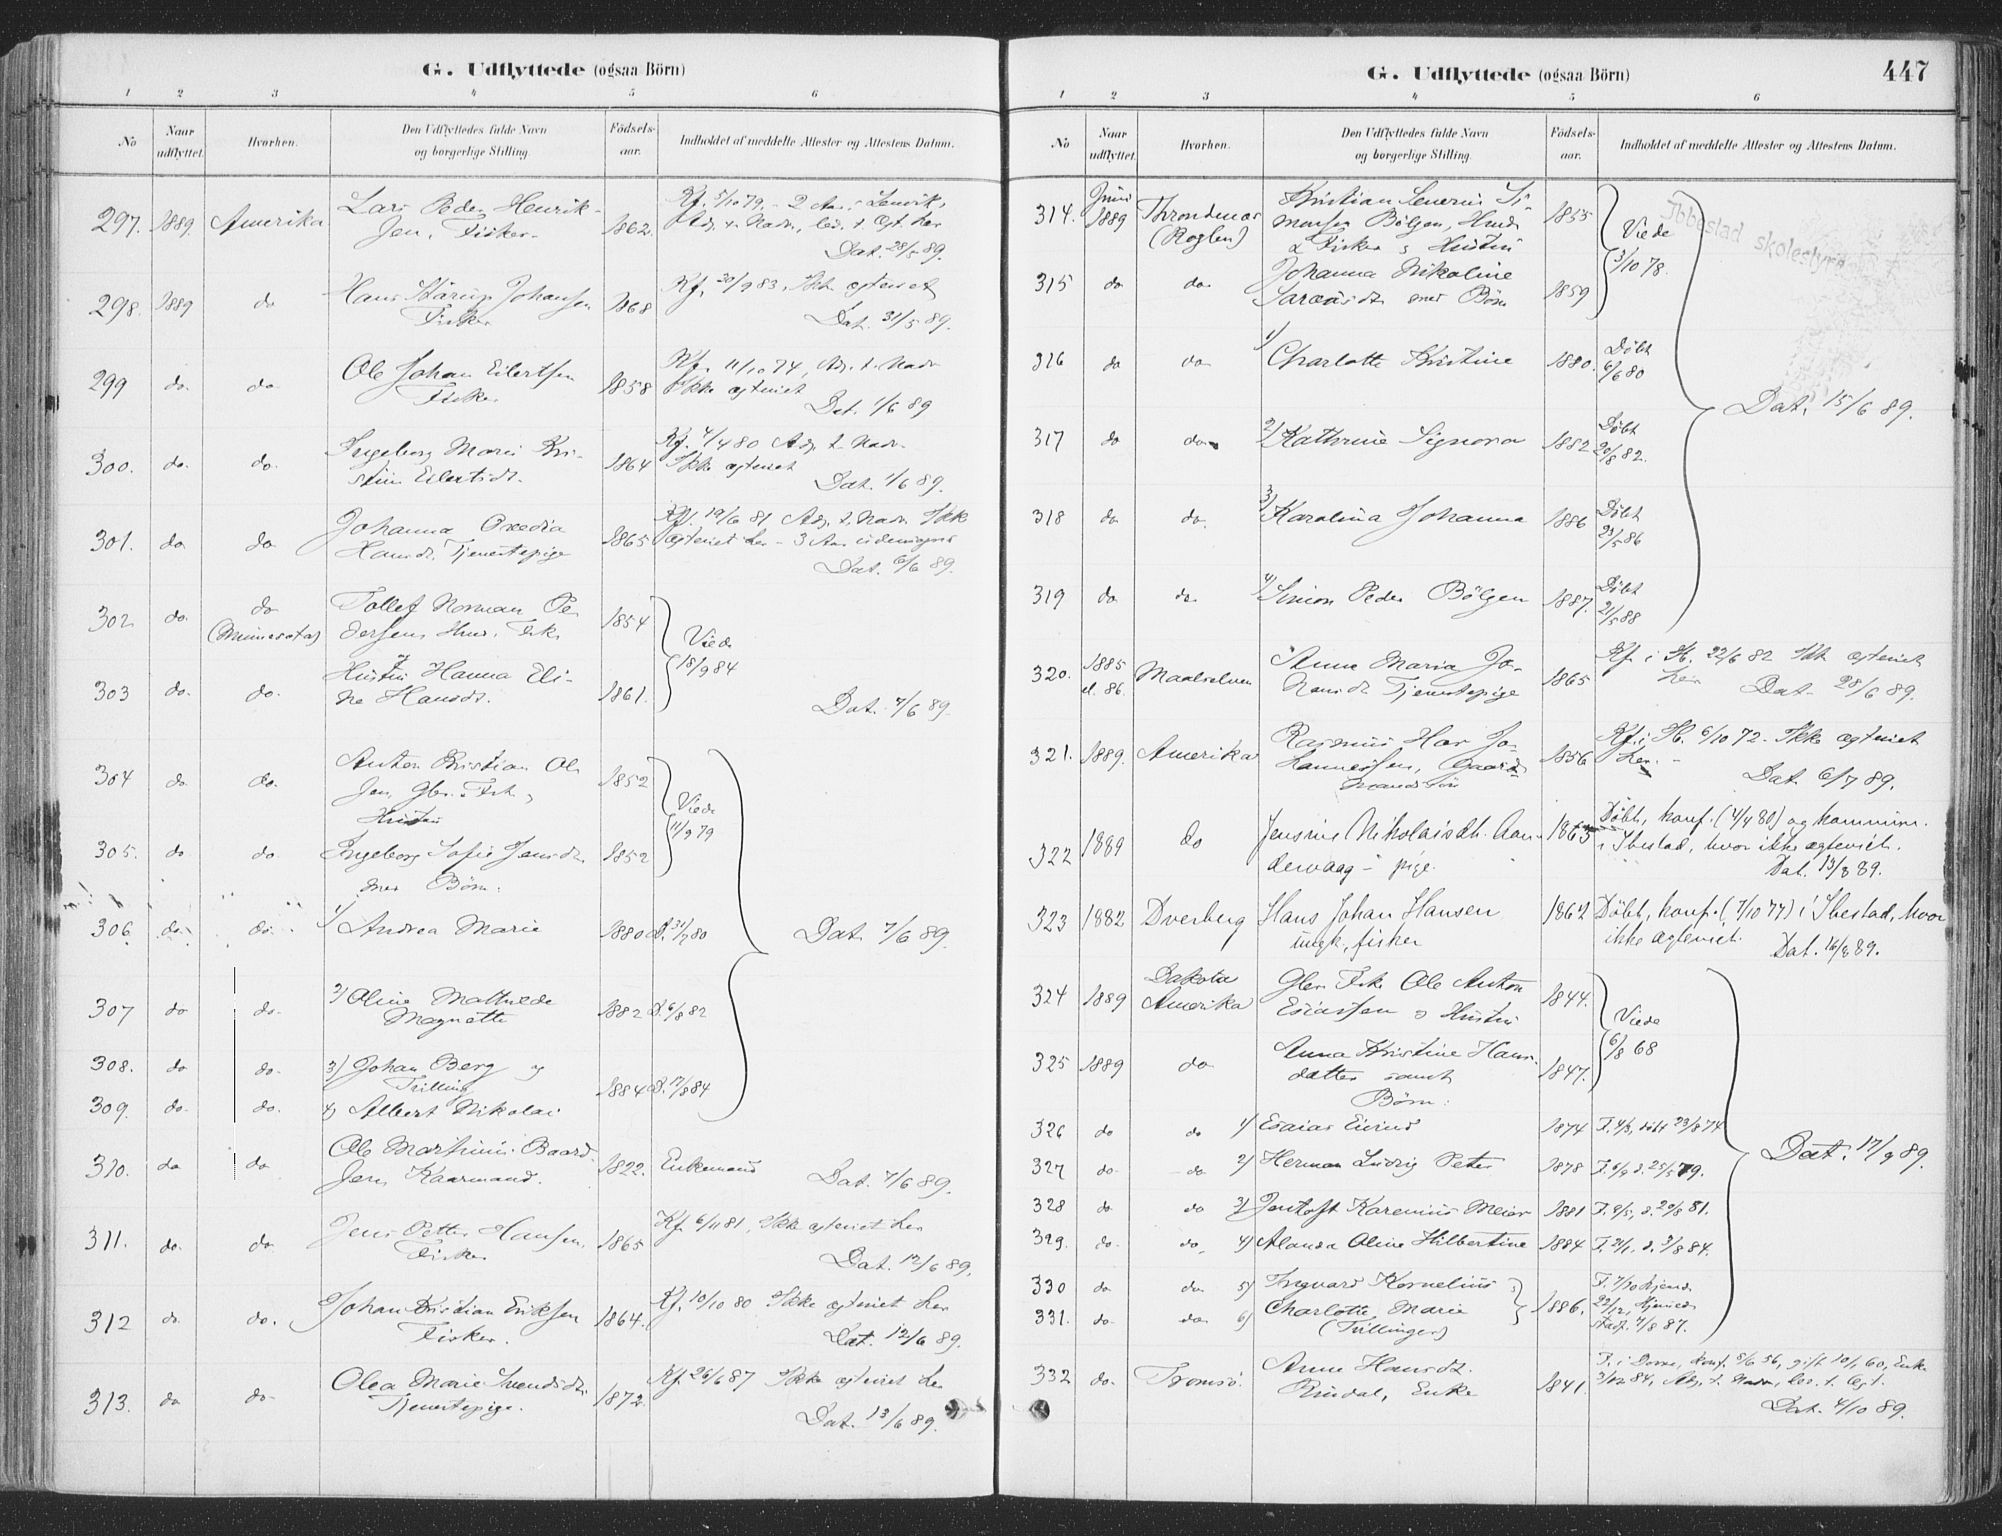 G. Udflyttede (ogsaa Börn)
1 2 3 4 5 6
No
Naar udflyttet.
Hvorhen.
Den Udflyttedes fulde Navn og borgerlige Stilling.
Födsels-aar.
Indholdet af meddelte Attester og Attestens Datum.
297. 1889. Amerika Lars Peder Henrik- 1862. Kf. 5/10 79, - 2 Aar i Lenvik,
sen, Fisker.
Dat. 28/5 89.
298. 1889 do Hans Johansen 1868 Kf. 30/9 83, Ikk ægteviet
Fisker Dat. 31/5 89.
299 do do Ole Johan Eilertsen 1858 Kf. 11/10 74, Adg. t. Nadv
Fisker Ikke ægteviet
Dat. 1/6 89
300. do. do. Ingeborg Marie Kri- 1864 Kf. 4/4 80 Adg. t. Nadv.
stine Eilertsdt. Ikke ægteviet
Dat. 1/6 89.
301. do do Johanna 1865 Kf. 19/6 81, Adg. t. Nadv. Ikk
Hansdt. Tjenestepige ægteviet her - 3 Aar
Dat. 6/6 89.
302 do do Tollef Norman Pe- 1854
(Minnesota) dersen Fisk.
Viede 18/9 84
303 do. do. Hustru Hanna Eli- 1861.
ne Hansdt. Dat. 7/6 89.
304 do do. Anton Kristian Ol- 1852
sen, Gbr. Fisk. &
Hustru
Viede 11/9 79
305. do do Ingeborg Sofie Jensdt. 1852
med Børn:
306 do. do. 1) Andrea Marie 1880 d. 31/7 80
Dat. 7/6 89.
307 do do. 2) Oline Mathilde 1882 d. 6/8 82
Magnette
308. do do. 3) Johan Berg og
Trilling 1884 d. 7/8 84
309. do. do. 4) Albert Nikolai
310. do do Ole Martinus Baard- 1822. Enkemand
sen Kaarmand. Dat. 7/6 89.
311. do. do. Jens Petter Hansen, 1865 Kf. 6/11 81, Ikke ægteviet her
Fisker Dat. 12/6 89.
312 do. do. Johan Kristian Eriksen 1864. Kf. 10/10 80 Ikke ægteviet her
Fisker. Dat. 12/6 89.
313. do do. Olea Marie Svendsdt. 1872. Kf. 26/6 87 Ikke ægteviet her
Tjenestepige. Dat. 13/6 89.
G. Udflyttede (ogsaa Börn)
447
1 2 3 4 5 6
No
Naar udflyttet.
Hvorhen.
Den Udflyttedes fulde Navn og borgerlige Stilling.
Födsels-aar.
Indholdet af meddelte Attester og Attestens Datum.
Ibbestad skolestyre
314. Juni 1889 Throndenæs Kristian Severin Si- 1855
monsen Bölgen, Husm.
& Fisker & Hustru
Viede 3/10 78.
315 do do Johanna Nikoline 1859
med Børn
316 do do 1) Charlotte Kristine 1880. Döbt 6/6 80
Dat. 15/6 89.
317 do do 2) Kathrine Signora 1882 Döbt 20/8 82.
318 do do. 3) Karolina Johanna 1886 Döbt 23/5 86
319 do do 4) Simon Peder Bölgen 1887. Döbt 21/5 88
320. 1885 el. 86. Maalselven Anna Maria Jo- 1865 Kf. i H. 22/6 82 Ikk ægteviet
hansdt. Tjenestepige her Dat. 28/6 89.
321. 1889. Amerika Rasmus Hov Jo- 1856 Kf. i H. 6/10 72. Ikke ægteviet
hannessen, Gaard- her. -
mandssön Dat. 6/7 89.
322 1889 do Jensine Nikolaisdt. Aan- 1865 Döbt, konf. (4/4 80) og kommun.
dervaag - pige. i Ibestad, hvor ikke ægteviet.
Dat. 13/8 89.
323 1882 Dverberg Hans Johan Hansen 1862 Döbt, konf. (7/10 77) i Ibestad, hvor
ungk., fisker ikke ægteviet. Dat. 16/8 89.
324 1889 Dakota Amerika Gbr. Fisk. Ole Anton 1844.
Esaiassen & Hustru
Viede 6/8 68
325 1889 do Anna Kristine Hans- 1847.
datter samt
Børn:
326 do do 1) Esaias Eivind 1874 F. 4/3, döbt 23/8 74
327 do do 2) Herman Ludvig Peter 1878 F. 6/9 d. 25/5 79.
Dat. 17/9 89.
328 do do 3) Jentoft Karenius Meier 1881 F. 9/5, d. 20/8 81.
329. do. do. 4) Alanda Oline Hilbertine 1884 F. 21/1. d. 3/8 84.
330 do do 5) Ingvard Kornelius F. 7/10 Hjemd.
331. do. do 6) Charlotte Marie 1886. 22/12, Hjemmed.
(Tvillinger) stadf. 7/8 87.
332 do. Tromsö. Anne Hansdt. 1841. F. i konf. 8/6 56, gift 10/1 60, Enke
Rindal, Enke 3/12 84, Adg. t. Nadv., led. t. Ægt.
Dat. 4/10 89.